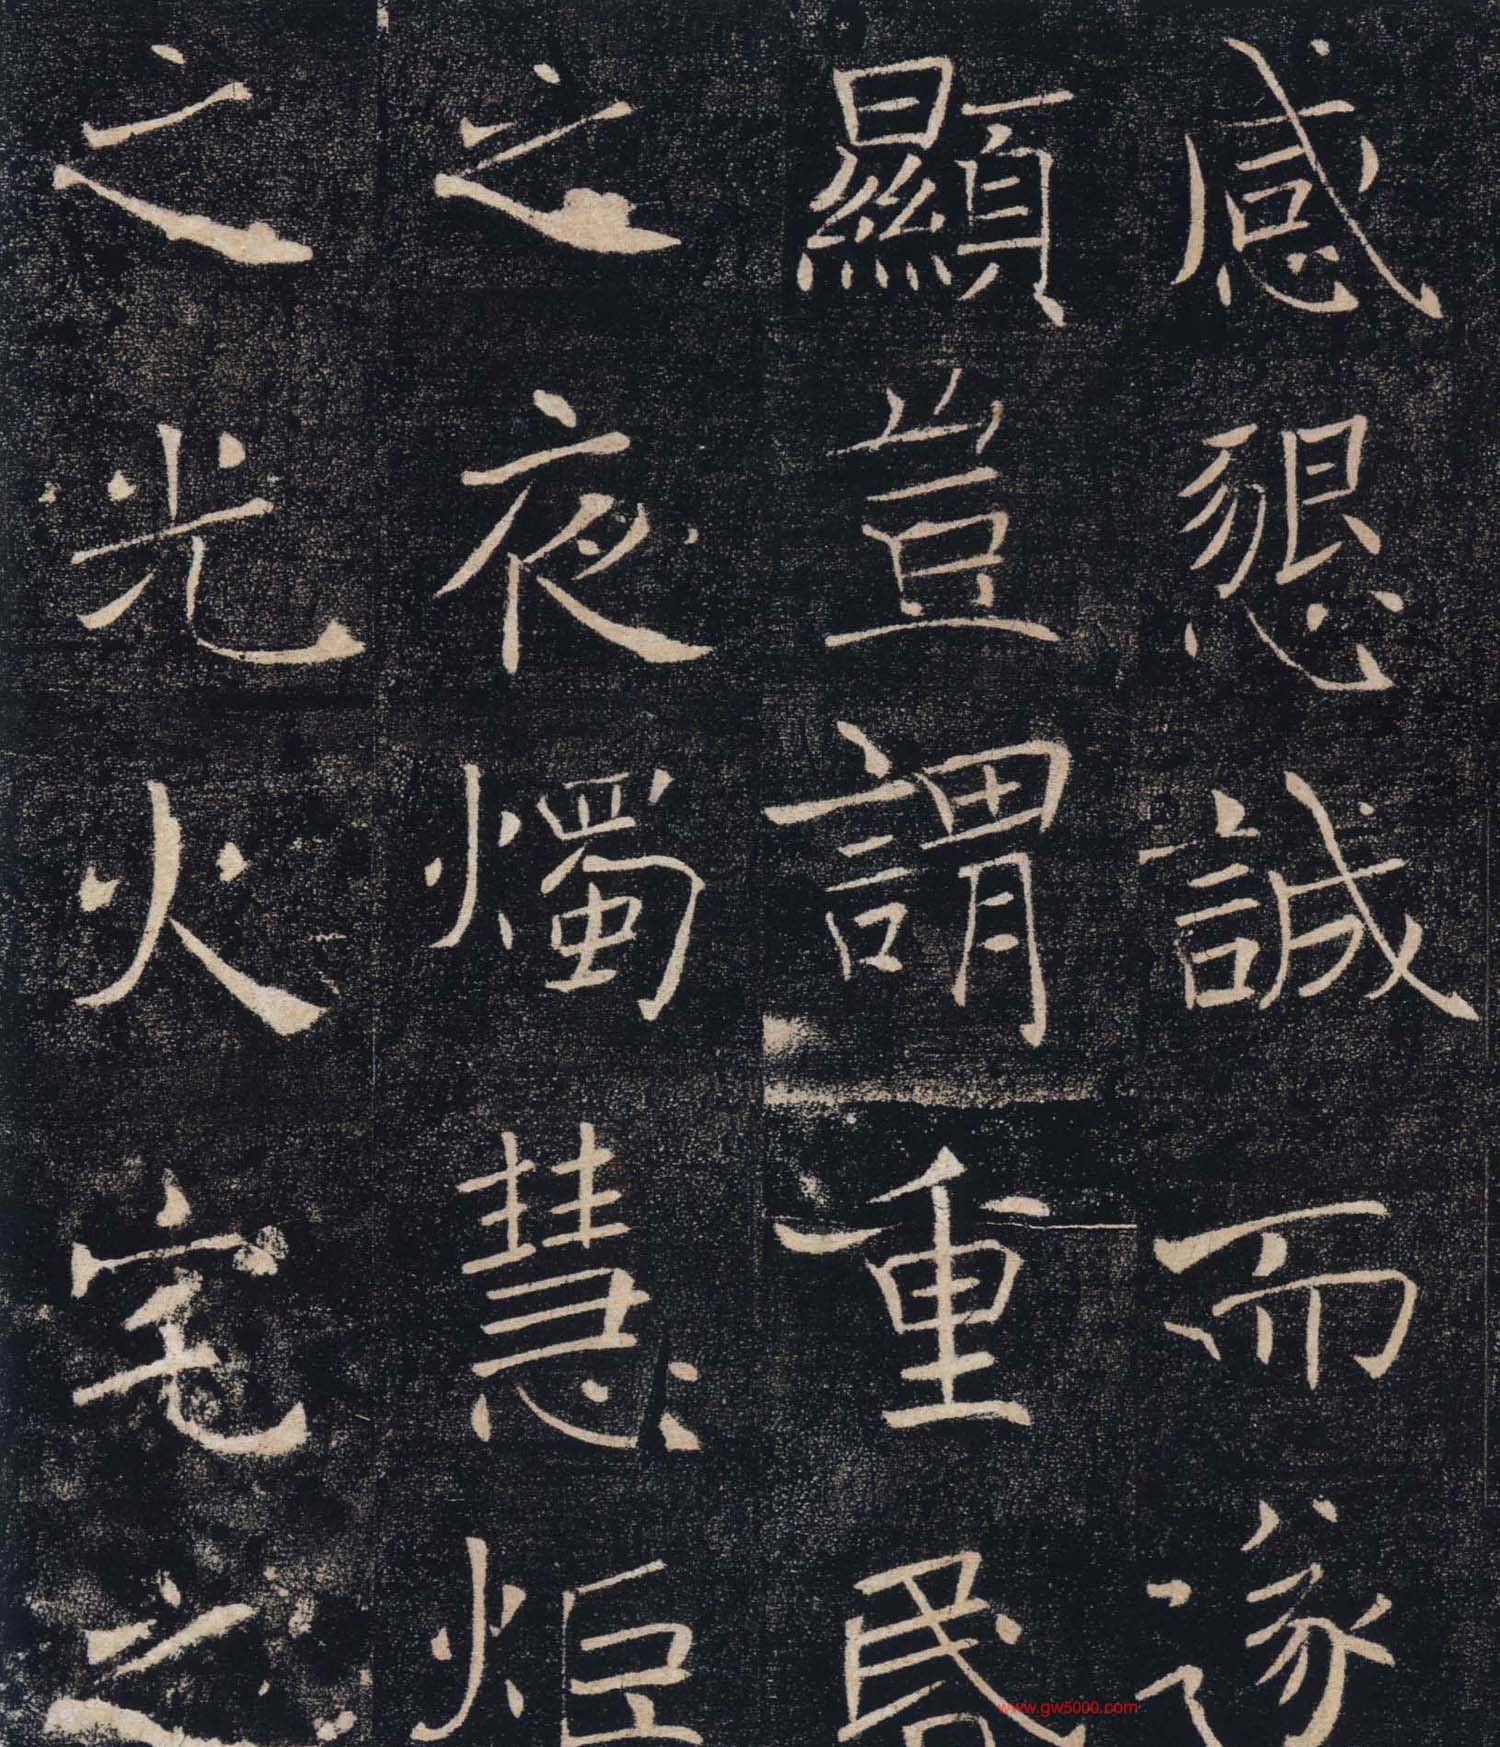 感懇誠而遂
顯豈謂重昏
之夜燭慧炬
之光火宅之
www.gw5000.com